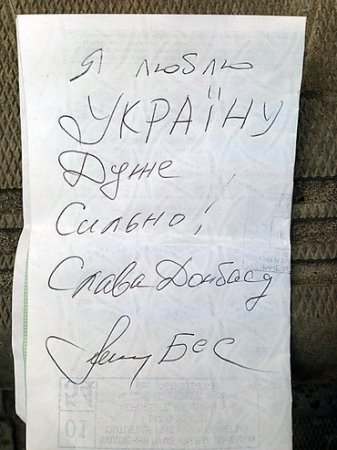 Я люблю
УКРАЇНУ
Дуже
Сильно!
Слава Донбасу
Бес